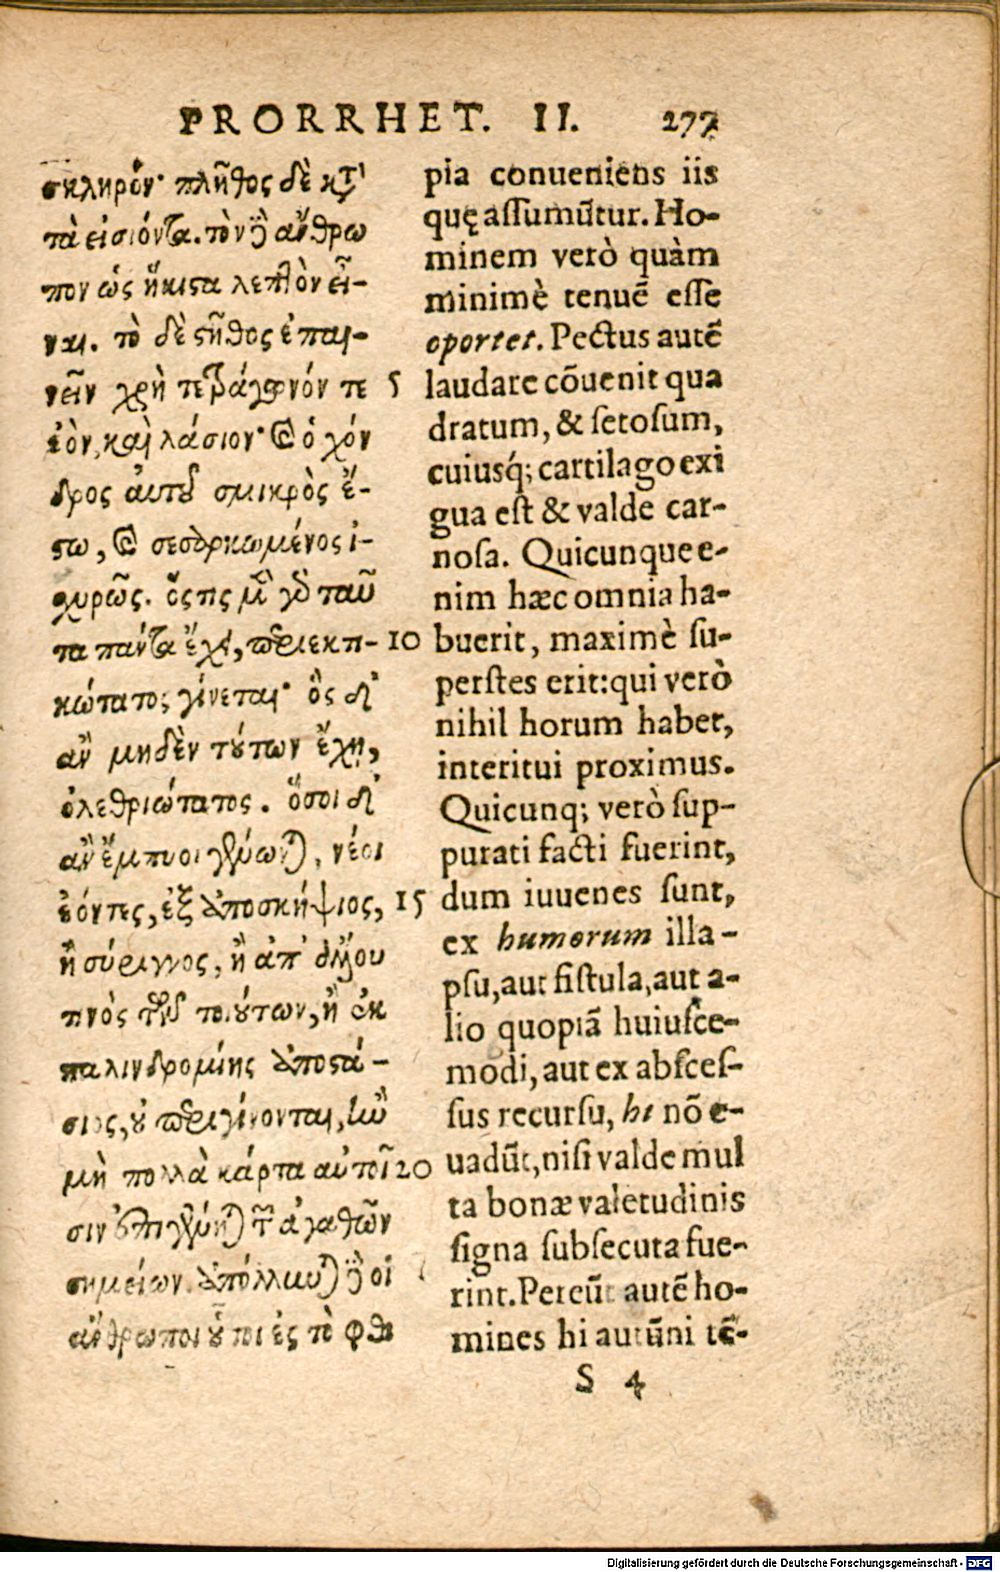 PRORRHET. II. 277
σκληρόν· πλῆθος δὲ κτ'
τὰ εἰσιόντα. τὸν δὲ ἄνθρω
πον ὡς ἥκιστα λεπτὸν εἶ-
ναι. τὸ δὲ στῆθος ἐπαι-
νεῖν χρὴ τετράγωνόν τε
ἐὸν, καὶ λάσιον· καὶ ὁ χόν
δρος αὐτοῦ σμικρὸς ἔ-
στω, καὶ σεσαρκωμένος ἰ-
χυρῶς. ὅστις μὲν γὰρ ταῦ
τα πάντα ἔχει, περιεκτι-
κώτατος γίνεται· ὃς δ'
ἂν μηδὲν τούτων ἔχῃ,
ὀλεθριώτατος. ὅσοι δ'
ἂν ἔμπυοι γένωνται, νέοι
ἐόντες, ἐξ ἀποσκήψιος,
ἢ σύριγγος, ἢ ἀπ' ἄλλου
τινὸς τῶν τοιούτων, ἢ ἐκ
παλινδρομίης ἀποστά-
σιος, οὐ περιγίνονται, ἢν
μὴ πολλὰ κάρτα αὐτοῖ
σιν ἐπιγένηται τῶν ἀγαθῶν
σημείων. ἀπόλλυνται δὲ οἱ
ἄνθρωποι οὗτοι ἐς τὸ φθι
5
10
15
20
pia conueniens iis
quę assumũtur. Ho-
minem verò quàm
minimè tenuẽ esse
oportet. Pectus autẽ
laudare cõuenit qua
dratum, & setosum,
cuiusq́; cartilago exi
gua est & valde car-
nosa. Quicunque e-
nim hæc omnia ha-
buerit, maximè su-
perstes erit: qui verò
nihil horum habet,
interitui proximus.
Quicunq; verò sup-
purati facti fuerint,
dum iuuenes sunt,
ex humorum illa-
psu, aut fistula, aut a-
lio quopiã huiusce-
modi, aut ex absces-
sus recursu, hi nõ e-
uadũt, nisi valde mul
ta bonæ valetudinis
signa subsecuta fue-
rint. Pereũt autẽ ho-
mines hi autũni tẽ-
S 4
Digitalisierung gefördert durch die Deutsche Forschungsgemeinschaft - DFG